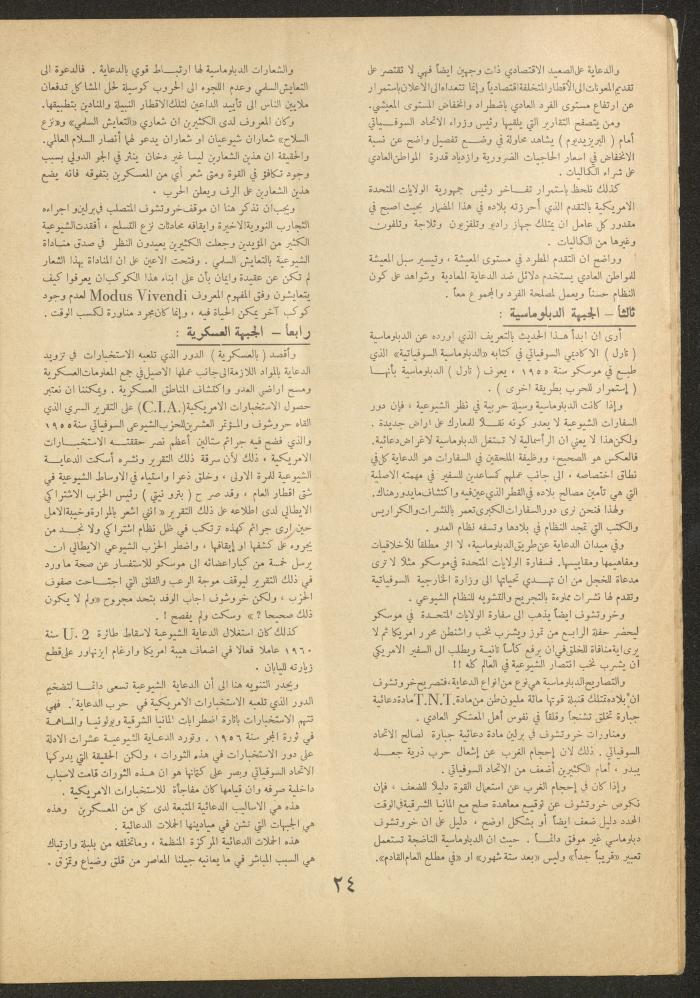 والدعاية على الصعيد الاقتصادي ذات وجهين ايضاً فهي لا تقتصر على
تقديم المعونات الى الأقطار المتخلفة اقتصادياً وإنما تتعداه الى الاعلان باستمرار
عن ارتفاع مستوى الفرد العادي باضطراد وانخفاض المستوى المعيشي.
ومن يتصفح التقارير التي يلقيها رئيس وزراء الاتحاد السوفـــياتي
أمام ( البريزيديوم ) يشاهد محاولة في وضـــع تفصيل واضح عن نسبة
الانخفاض في اسعار الحاجيات الضرورية وازدياد قدرة المواطن العادي
على شراء الكماليات .
كذلك نلحظ باستمرار تفــاخر رئيس جمهورية الولايات المتحدة
الامريكية بالتقدم الذي أحرزته بلاده في هذا المضمار بحيث اصبح في
مقدور كل عامل ان يمتلك جهاز راديو وتلفزيون وثلاجة وتلفون
وغيرها من الكماليات .
وواضح ان التقدم المطرد في مستوى المعيشة ، وتيسير سبل المعيشة
للمواطن العادي يستخدم دلائل ضد الدعاية المعادية وشواهد على كون
النظام حسناً ويعمل لمصلحة الفرد والمجموع معاً .
ثالثاً – الجبهة الدبلوماسية :
أرى ان ابدأ هذا الحديث بالتعريف الذي اورده عن الدبلوماسية
( تارل ) الاكاديمي السوفياتي في كتابه «الدبلوماسية السوفياتية» الذي
طبـع في موسكو سنة ١٩٥٥ ، يعرف ( تارل ) الدبلوماسية بأنهــا
( إستمرار للحرب بطريقة اخرى ) .
وإذا كانت الدبلوماسية وسيلة حربية في نظر الشيوعية ، فإن دور
السفارات الشيوعية لا يعدو كونه نقــلاً للمعارك على اراض جديدة .
ولكن هذا لا يعني ان الرأسمالية لا تستغل الدبلوماسية لاغراض دعائية.
فالعكس هو الصحيح، ووظيفة الملحقين في السفارات هو الدعاية كل في
نطاق اختصاصه ، الى جانب عملهم كمساعدين للسفير في مهمته الاصلية
التي هي تأمين مصالح بلاده في القطر الذي عين فيه واكتشاف ما يدور هناك.
ولهذا فنحن نرى دور السفارات الكبرى تعمر بالنشرات والكراريس
والكتب التي تمجد النظام في بلادها وتسفه نظام العدو .
وفي ميدان الدعاية عن طريق الدبلوماسية، لا اثر مطلقاً للأخلاقيات
ومفاهيمها ومقاييسها. فسفارة الولايات المتحدة في موسكو مثلاً لا ترى
مدعاة للخجل من ان تهــدي تحياتها الى وزارة الخارجية السوفياتية
وتقدم لها نشرات مملوءة بالتجريح والتشويه للنظام الشيوعي .
وخروتشوف ايضاً يذهب الى سفارة الولايات المتحــدة في موسكو
ليحضر حفلة الرابــع من تموز ويشرب نخب واشنطن محرر امريكا ثم لا
يرى اية منافاة للخلق في ان يرفع كأساً ثانيــة ويطلب الى السفير الامريكي
أن يشرب نخب انتصار الشيوعية في العالم كله !!
والتصاريح الدبلوماسية هي نوع من انواع الدعاية، فتصريح خروتشوف
ان بلاده تملك قنبلة قوتها مائة مليون طن من مادة .T.N.T مادة دعائية
جبارة تخلق تشنجاً وقلقاً في نفوس أهل المعسكر العادي .
ومناورات خروتشوف في برلين مادة دعائية جبارة لصالح الاتحاد
السوفياتي . ذلك لان احجام الغرب عن إشعال حرب ذرية جعــله
يبدو ، أمام الكثيرين أضعف من الاتحاد السوفياتي .
وإذا كان في إحجام الغرب عن استعمال القوة دليلاً للضعف ، فإن
نكوص خروتشوف عن توقيع معاهدة صلح مع المانيا الشرقية في الوقت
المحدد دليل ضعف ايضاً أو بشكل اوضح ، دليل على ان خروتشوف
دبلوماسي غير موفق دائمــاً . حيث ان الدبلوماسية الناضجة تستعمل
تعبير «قريباً جداً» وليس «بعد ستة شهور» او «في مطلع العام القادم».
والشعارات الدبلوماسية لها ارتبــاط قوي بالدعاية . فالدعوة الى
التعايش السلمي وعدم اللجوء الى الحروب كوسيلة لحل المشاكل تدفعان
ملايين الناس الى تأييد الداعين لتلك الافكار النبيلة والمنادين بتطبيقها.
وكان المعروف لدى الكثيرين ان شعاري «التعايش السلمي» و«نزع
السلاح» شعاران شيوعيان او شعاران يدعو لهما أنصار السلام العالمي.
والحقيقة ان هذين الشعارين ليسا غير دخان ينثر في الجو الدولي بسبب
وجود تكافؤ في القوة ومتى شعر أي من المعسكرين بتفوقه فانه يضع
هذين الشعارين على الرف ويعلن الحرب .
ويجب ان نذكر هنا ان موقف خروتشوف المتصلب في برلين و اجراءه
التجارب النووية الاخيرة وإيقافه محادثات نزع التسلح ، أفقدت الشيوعية
الكثير من المؤيدين وجعلت الكثيرين يعيدون النظر في صدق منــاداة
الشيوعية بالتعايش السلمي . وفتحت الاعين على ان المناداة بهذا الشعار
لم تكن عن عقيدة وايمان بأن على ابناء هذا الكوكب ان يعرفوا كيف
يتعايشون وفق المفهوم المعروف Modus Vivendi لعدم وجود
كوكب آخر يمكن الحياة فيه ، وإنما كان مجرد مناورة لكسب الوقت .
رابعاً – الجبهة العسكرية :
وأقصد ( بالعسكرية ) الدور الذي تلعبه الاستخبارات في تزويد
الدعاية بالمواد اللازمة الى جانب عملها الاصيل في جمع المعلومات العسكرية
ومسح اراضي العدو واكتشاف المناطق العسكرية . ويمكننا ان نعتبر
حصول الاستخبارات الامريكية (.C.I.A) على التقرير السري الذي
القاه خروشوف والمؤتمر العشرين للحزب الشيوعي السوفياتي سنة ١٩٥٥
والذي فضح فيه جرائم ستالين أعظم نصر حققتــه الاستخبــارات
الامريكية ، ذلك لأن سرقة ذلك التقرير ونشره أسكت الدعايــة
الشيوعية للمرة الاولى ، وخلق ذعرا واستياء في الاوساط الشيوعية في
شتى اقطار العام ، وقد صرح ( بترو نيتي ) رئيس الحزب الاشتراكي
الايطالي لدى اطلاعه على ذلك التقرير « انني اشعر بالمرارة وخيبة الامل
حين ارى جرائم كهذه ترتكب في ظل نظام اشتراكي ولا نجــد من
يجرؤ على كشفها او إيقافها ، واضطر الحزب الشيوعي الايطالي ان
يرسل خمسة من كبار اعضائه الى موسكو للاستفسار عن صحة ما ورد
في ذلك التقرير ليوقف موجة الرعب والقلق التي اجتــاحت صفوف
الحزب ، ولكن خروشوف اجاب الوفد بتحد مجروح «ولم لا يكون
ذلك صحيحاً ? » وسكت ولم يفصح ! .
كذلك كان استغلال الدعاية الشيوعية لاسقاط طائرة U. 2 سنة
١٩٦٠ عاملا فعالا في اضعاف هيبة امريكا وارغام ايزنهاور على قطع
زيارته لليابان .
ويجدر التنويه هنا الى أن الدعاية الشيوعية تسعى دائمــا لتضخيم
الدور الذي تلعبه الاستخبارات الامريكية في حرب الدعاية . فهي
تتهم الاستخبارات باثارة اضطرابات المانيا الشرقية وبولونيــا والمساهمة
في ثورة المجر سنة ١٩٥٦ . وتورد الدعـاية الشيوعية عشرات الادلة
على دور الاستخبارات في هذه الثورات ، ولكن الحقيقة التي يدركها
الاتحاد السوفياتي ويصر على كتمانها هو ان هــذه الثورات قامت لاسباب
داخلية صرفه وان قيامها كان مفاجأة للاستخبارات الامريكية .
هذه هي الاساليب الدعائية المتبعة لدى كل من المعسكرين وهذه
هي الجبهات التي تشن في ميادينها الحملات الدعائية .
هذه الحملات الدعائية المركزة المنظمة ، وما تخلقه من بلبلة وارتباك
هي السبب المباشر في ما يعانيه جيلنا المعاصر من قلق وضياع وتمزق .
٢٤